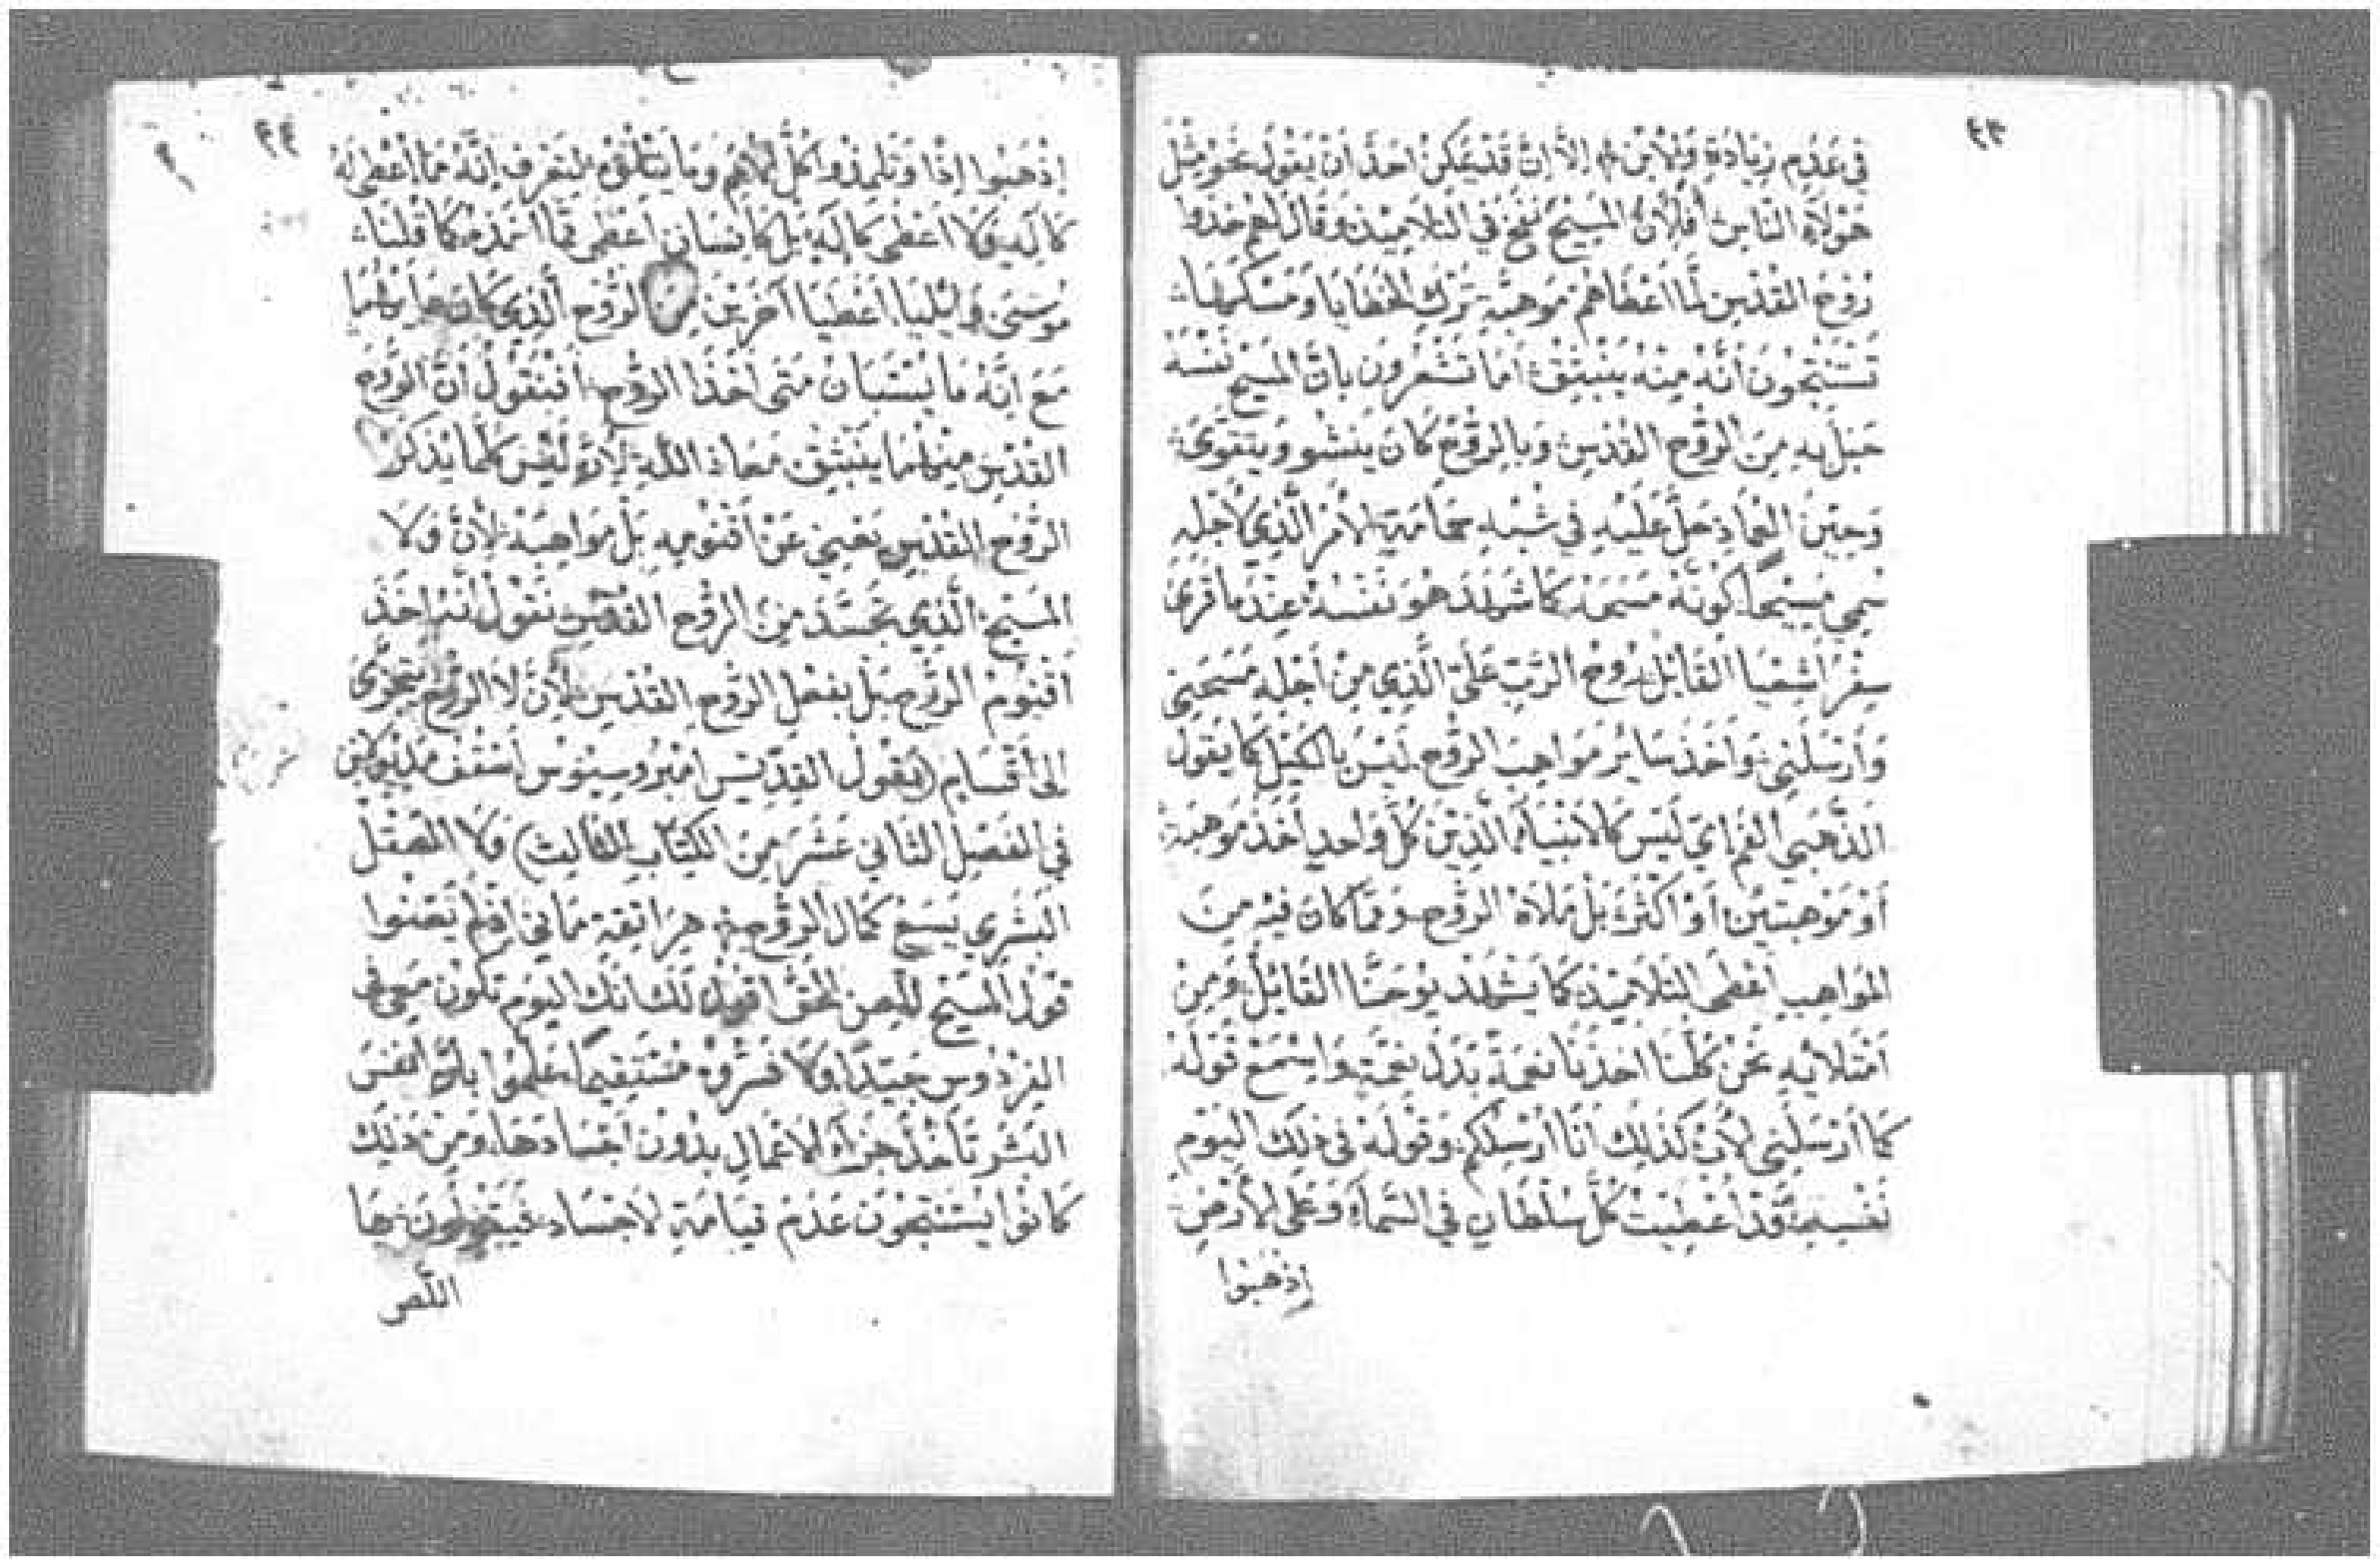 ٤٣
في عدم زيادة ولابن إلا إن قد يمكن احد ان يقول نحو مثل
هولاء الناس أفلأن المسيح نفخ في التلاميذ وقال لهم خذوا
روح القدس لما اعطاهم موهبة ترك الخطايا ومسكها
تستنتجون أنه منه ينبثق أما تشعرون بان المسيح نفسه
حبل به من الروح القدس وبالروح كان ينشو ويتقوى
وحين العماد حل عليه في شبه حمامة الأمر الذي لأجله
سمي مسيحًا كونه مسحه كما شهد هو نفسه عندما قرى
سفر أشعيا القايل روح الرب علي الذي من أجله مسحني
وأرسلني وأخذ ساير مواهب الروح ليس بالكيل كما يقول
الذهبي الفم اي ليس كالانبياء الذين كل واحد أخذ موهبة
أو موهبتين أو اكثر بل ملاة الروح ومما كان فيه من
المواهب أعطى التلاميذ كما يشهد يوحنا القايل ومن
امتلائه نحن كلنا اخذنا نعمة بدل نعمة واسمع قوله
كما أرسلني لأب كذلك أنا أرسلكم وقوله في ذلك اليوم
نفسه قد أعطيت كل سلطان في السماء وعلى لأرض
إذهبوا
٤٤
إذهبوا إذًا وتلمذوا كل الأمم وما يتلوه ليعرف إنه مما أعطي له
كاله ولا اعطى كاله بل كانسان اعطى مما اخذه كما قلنا
موسى وإيليا اعطيا آخرين الروح الذي كان
مع انه ما يستبان متى أخذا الروح افنقول ان الروح
القدس منهما ينبثق معاذ الله لأن ليس كلما يذكر
الروح القدس يعني عن أقنومه بل مواهبه لأن ولا
المسيح الذي تجسد من الروح القدس نقول أنه اخذ
أقنوم الروح بل بفعل الروح القدس لأن لا الروح يتجزى
الى أقسام (يقول القديس امبروسيوس أسقف مديولان
في الفصل الثاني عشر من الكتاب الثالث) ولا العقل
البشري يسع كمال الروح هراتقة ماني اذ لم يعنوا
قول المسيح للص الحق اقول لك انك اليوم تكون معي في
الفردوس جيدًا ولا فسروه مستقيمًا علموا بأن أنفس
البشر تأخذ جزاء الاعمال بدون أجسادها ومن ذلك
كانوا يستنتجون عدم قيامة لاجساد
اللص